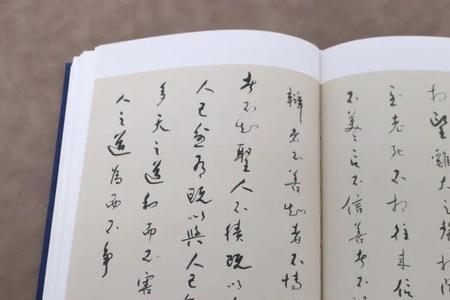 相望雞犬之聲相
民至老死不相往來信
不美美言不信善者不
辯者不善知者不博
者不知聖人不積既以
人己愈有既以與人己
多天之道利而不害
人之道為而不爭